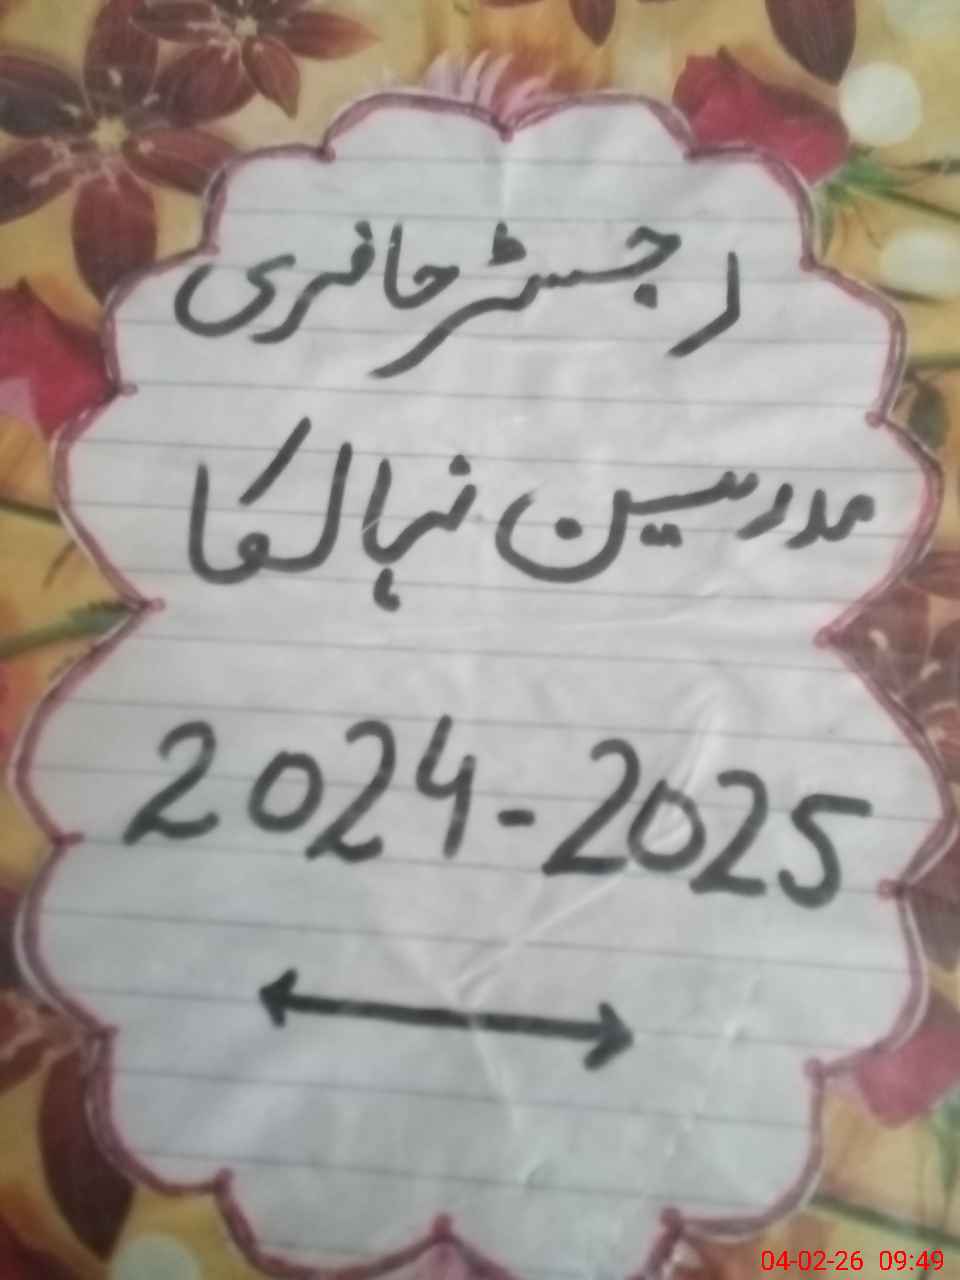 رجسٹر حاضری
مدرسین نہالکا
2024-2025
04-02-26 09:49